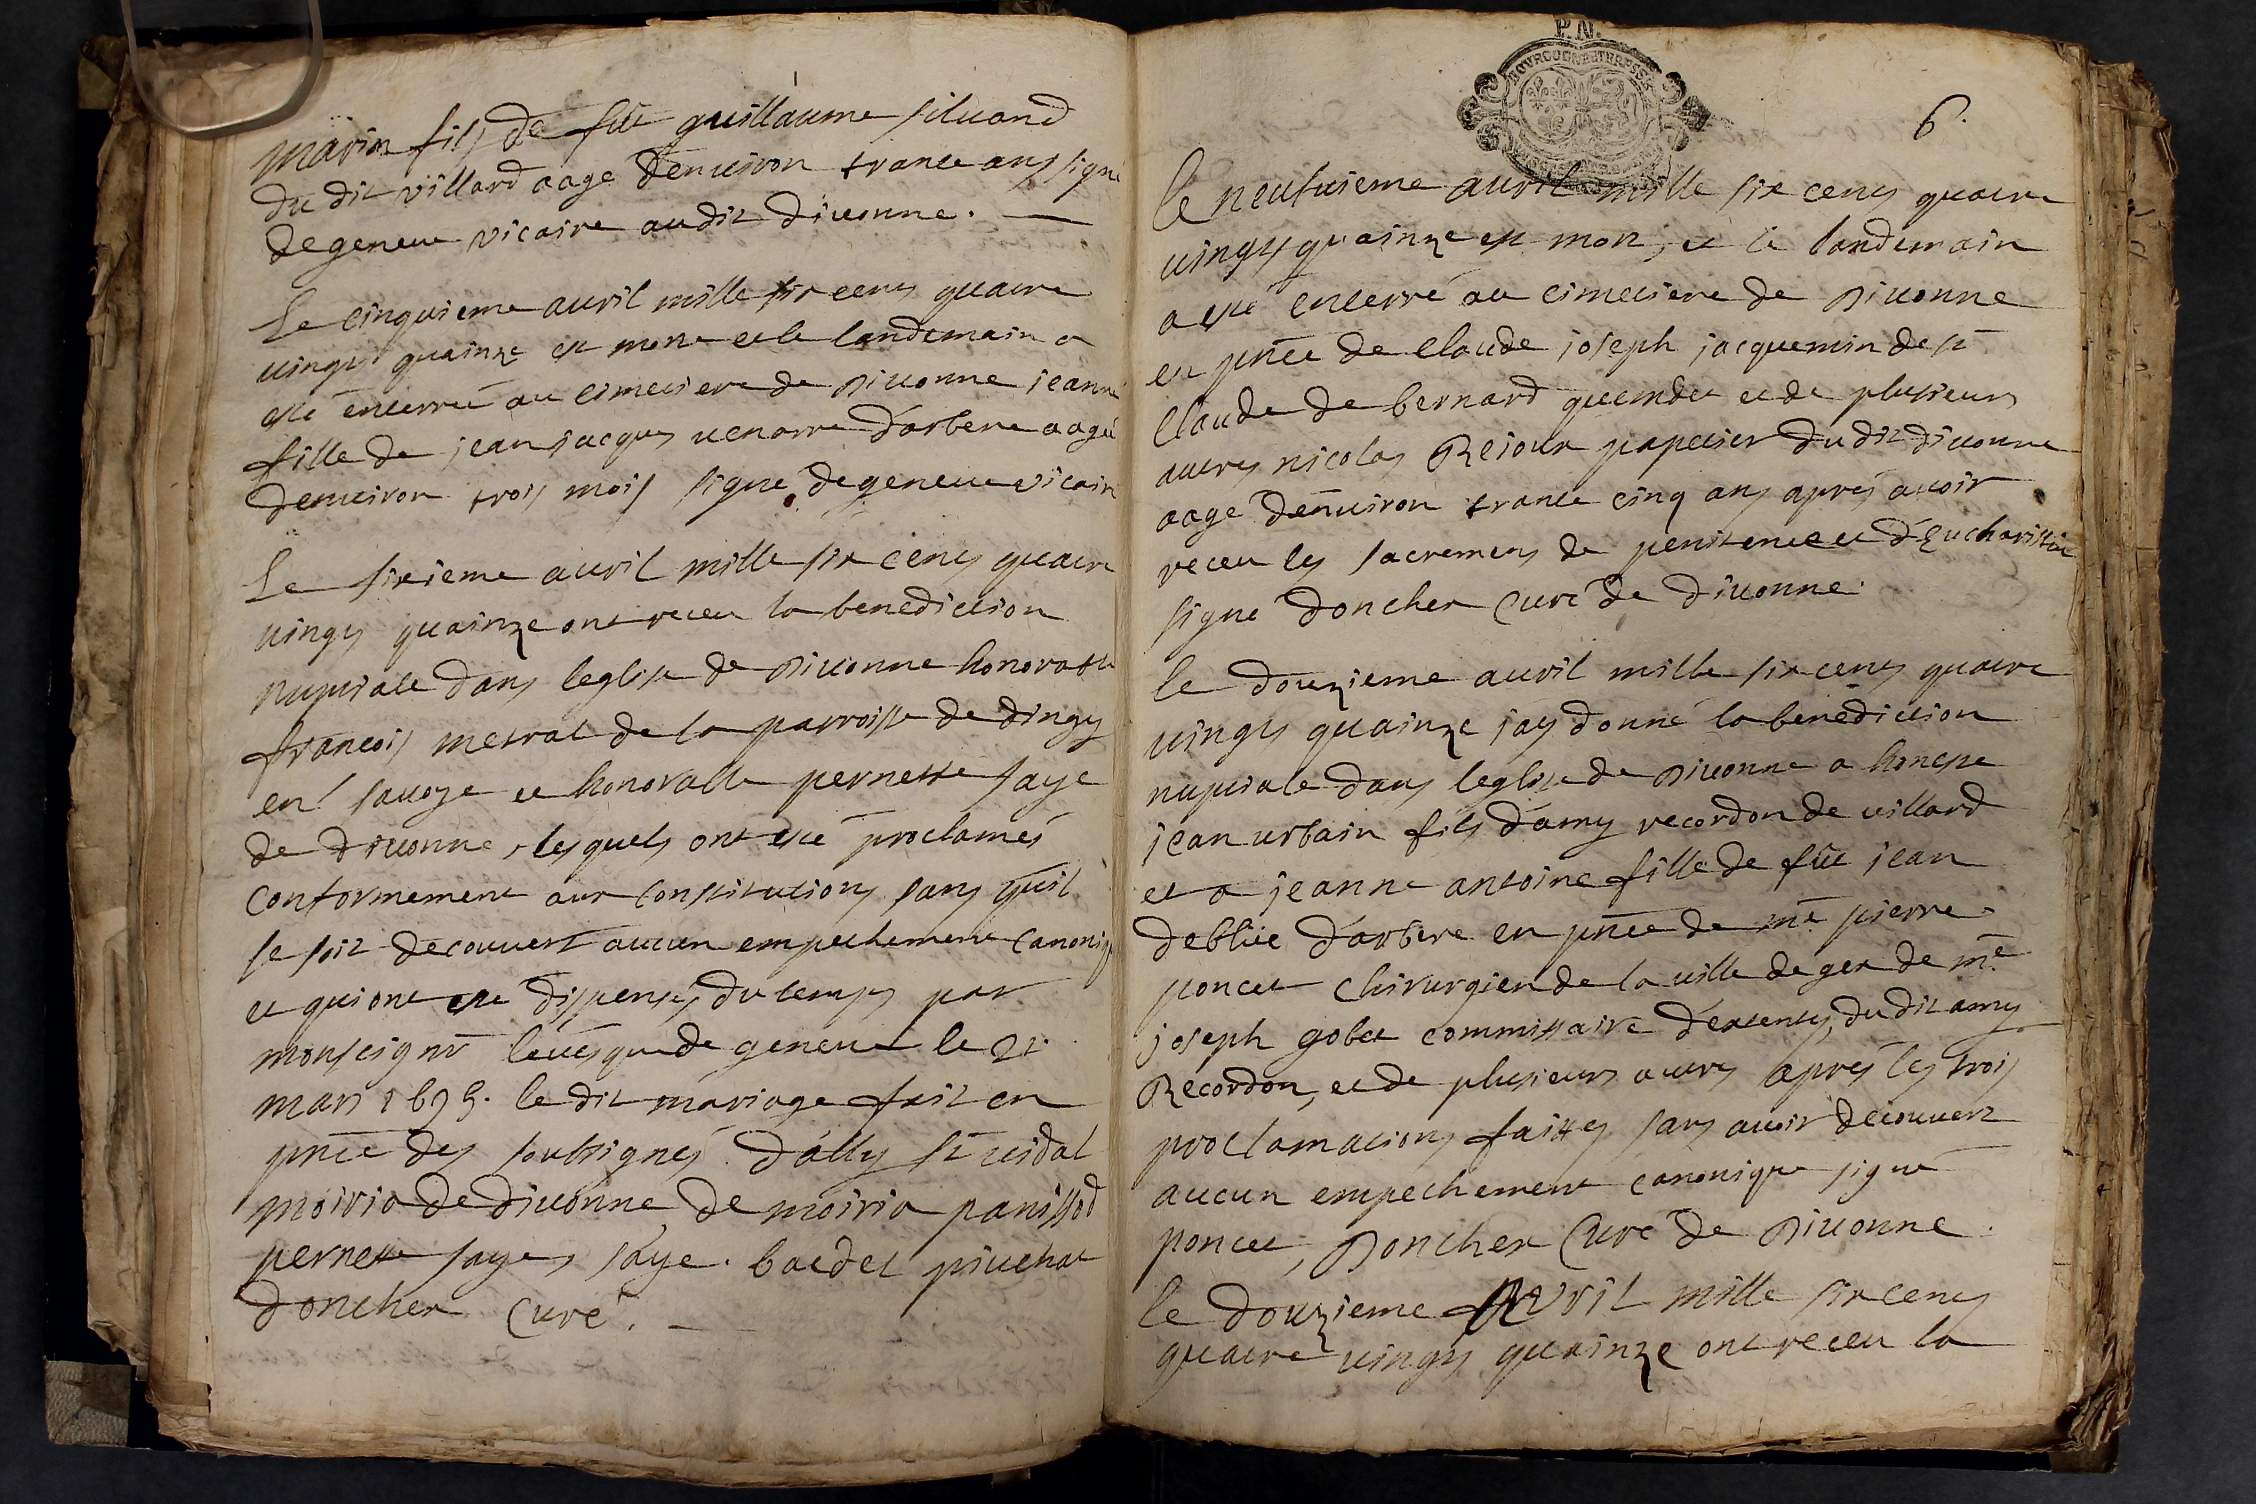 marin fils de fût guillaume siluand
du dit villard aage denuiron trante ans signé
degeneue vicaire audit diuonne.
Le cinquieme auril mille six cens quatre
uingts quainze est morte et le landemain a
esté enterrée au cimetiere de diuonne jeanne
fille de jean jacques uenarre d'arbere aagée
denuiron trois mois signé degeneue vicaire
Le sixieme auril mille six cens quatre
uingts quainze ont receu la benediction
nuptiale dans leglise de diuonne honorable
francois metral de la parroisse de dingy
en sauoye et honorable pernette saye
de diuonne, lesquels ont esté proclamés
conformement aux constitutions sans qu'il
se soit decouuert aucun empechement canoniq
et qui ont esté dispensés du temps par
monseignr leuesque de geneue le 21
mars 1695. le dit mariage fait en
pnce des soubsignés. d'ally st uidal
moiria de diuonne, de moiria panissod
pernette saye, saye. baedet piuchat
doncher Curé.
P. N.
BOVRGOGNE ET BRESSE
6.
le neufuieme auril mille six cens quatre
uingts quainze est mort, et le landemain
a esté enterré au cimetiere de diuonne
en pnce de claude joseph jacquemin de st
claude de bernard quemdet et de plusieurs
autres nicolas Rejoux papetier du dit diuonne
aage denuiron trante cinq ans aprés auoir
receu les sacremens de penitence et d'Eucharistie
signé doncher Curé de diuonne.
le douzieme auril mille six cens quatre
uingts quainze jay donné la benediction
nuptiale dans leglise de diuonne a honeste
jean urbain fils d'amy recordon de uillard
et a jeanne antoine fille de fût jean
deblüe d'arbere en pnce de mre pierre
poncet chirurgien de la uille de gex de mre
joseph gobet commissaire d'extentes, du dit amy
Recordon, et de plusieurs autres apres les trois
proclamations faittes sans auoir decouuert
aucun empechement canonique signé
poncet, Doncher Curé de diuonne.
le douzieme AVril mille six cens
quatre uingts quainze ont receu la